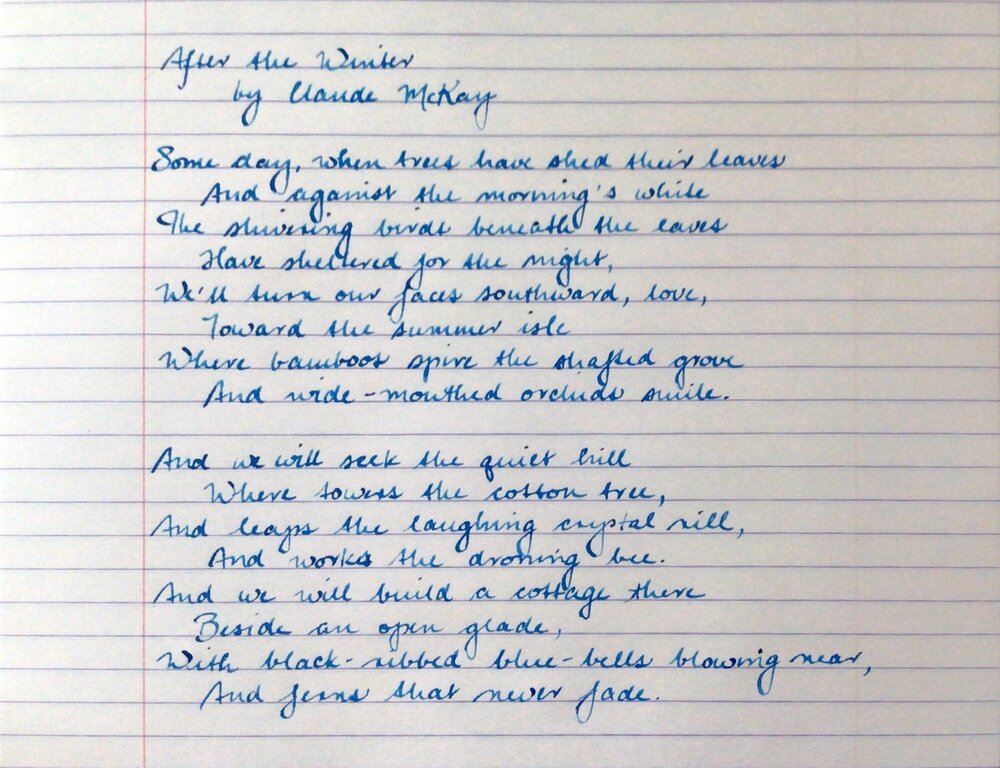 After the Winter
by Claude McKay
Some day, when trees have shed their leaves
And against the morning's white
The shivering birds beneath the eaves
Have sheltered for the night,
We'll turn our faces southward, love,
Toward the summer isle
Where bamboos spire the shafted grove
And wide-mouthed orchids smile.
And we will seek the quiet hill
Where towers the cotton tree,
And leaps the laughing crystal rill,
And works the droning bee.
And we will build a cottage there
Beside an open glade,
With black-ribbed blue-bells blowing near,
And ferns that never fade.